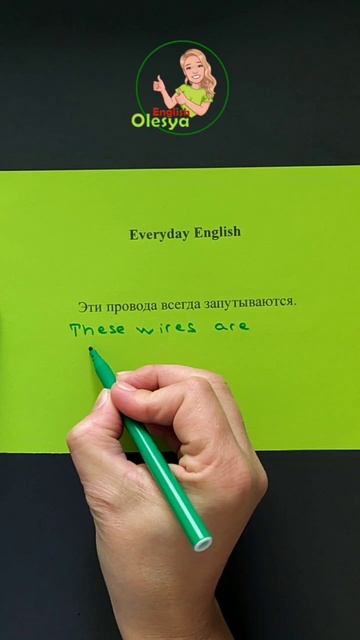 English
Olesya
Everyday English
Эти провода всегда запутываются.
These wires are